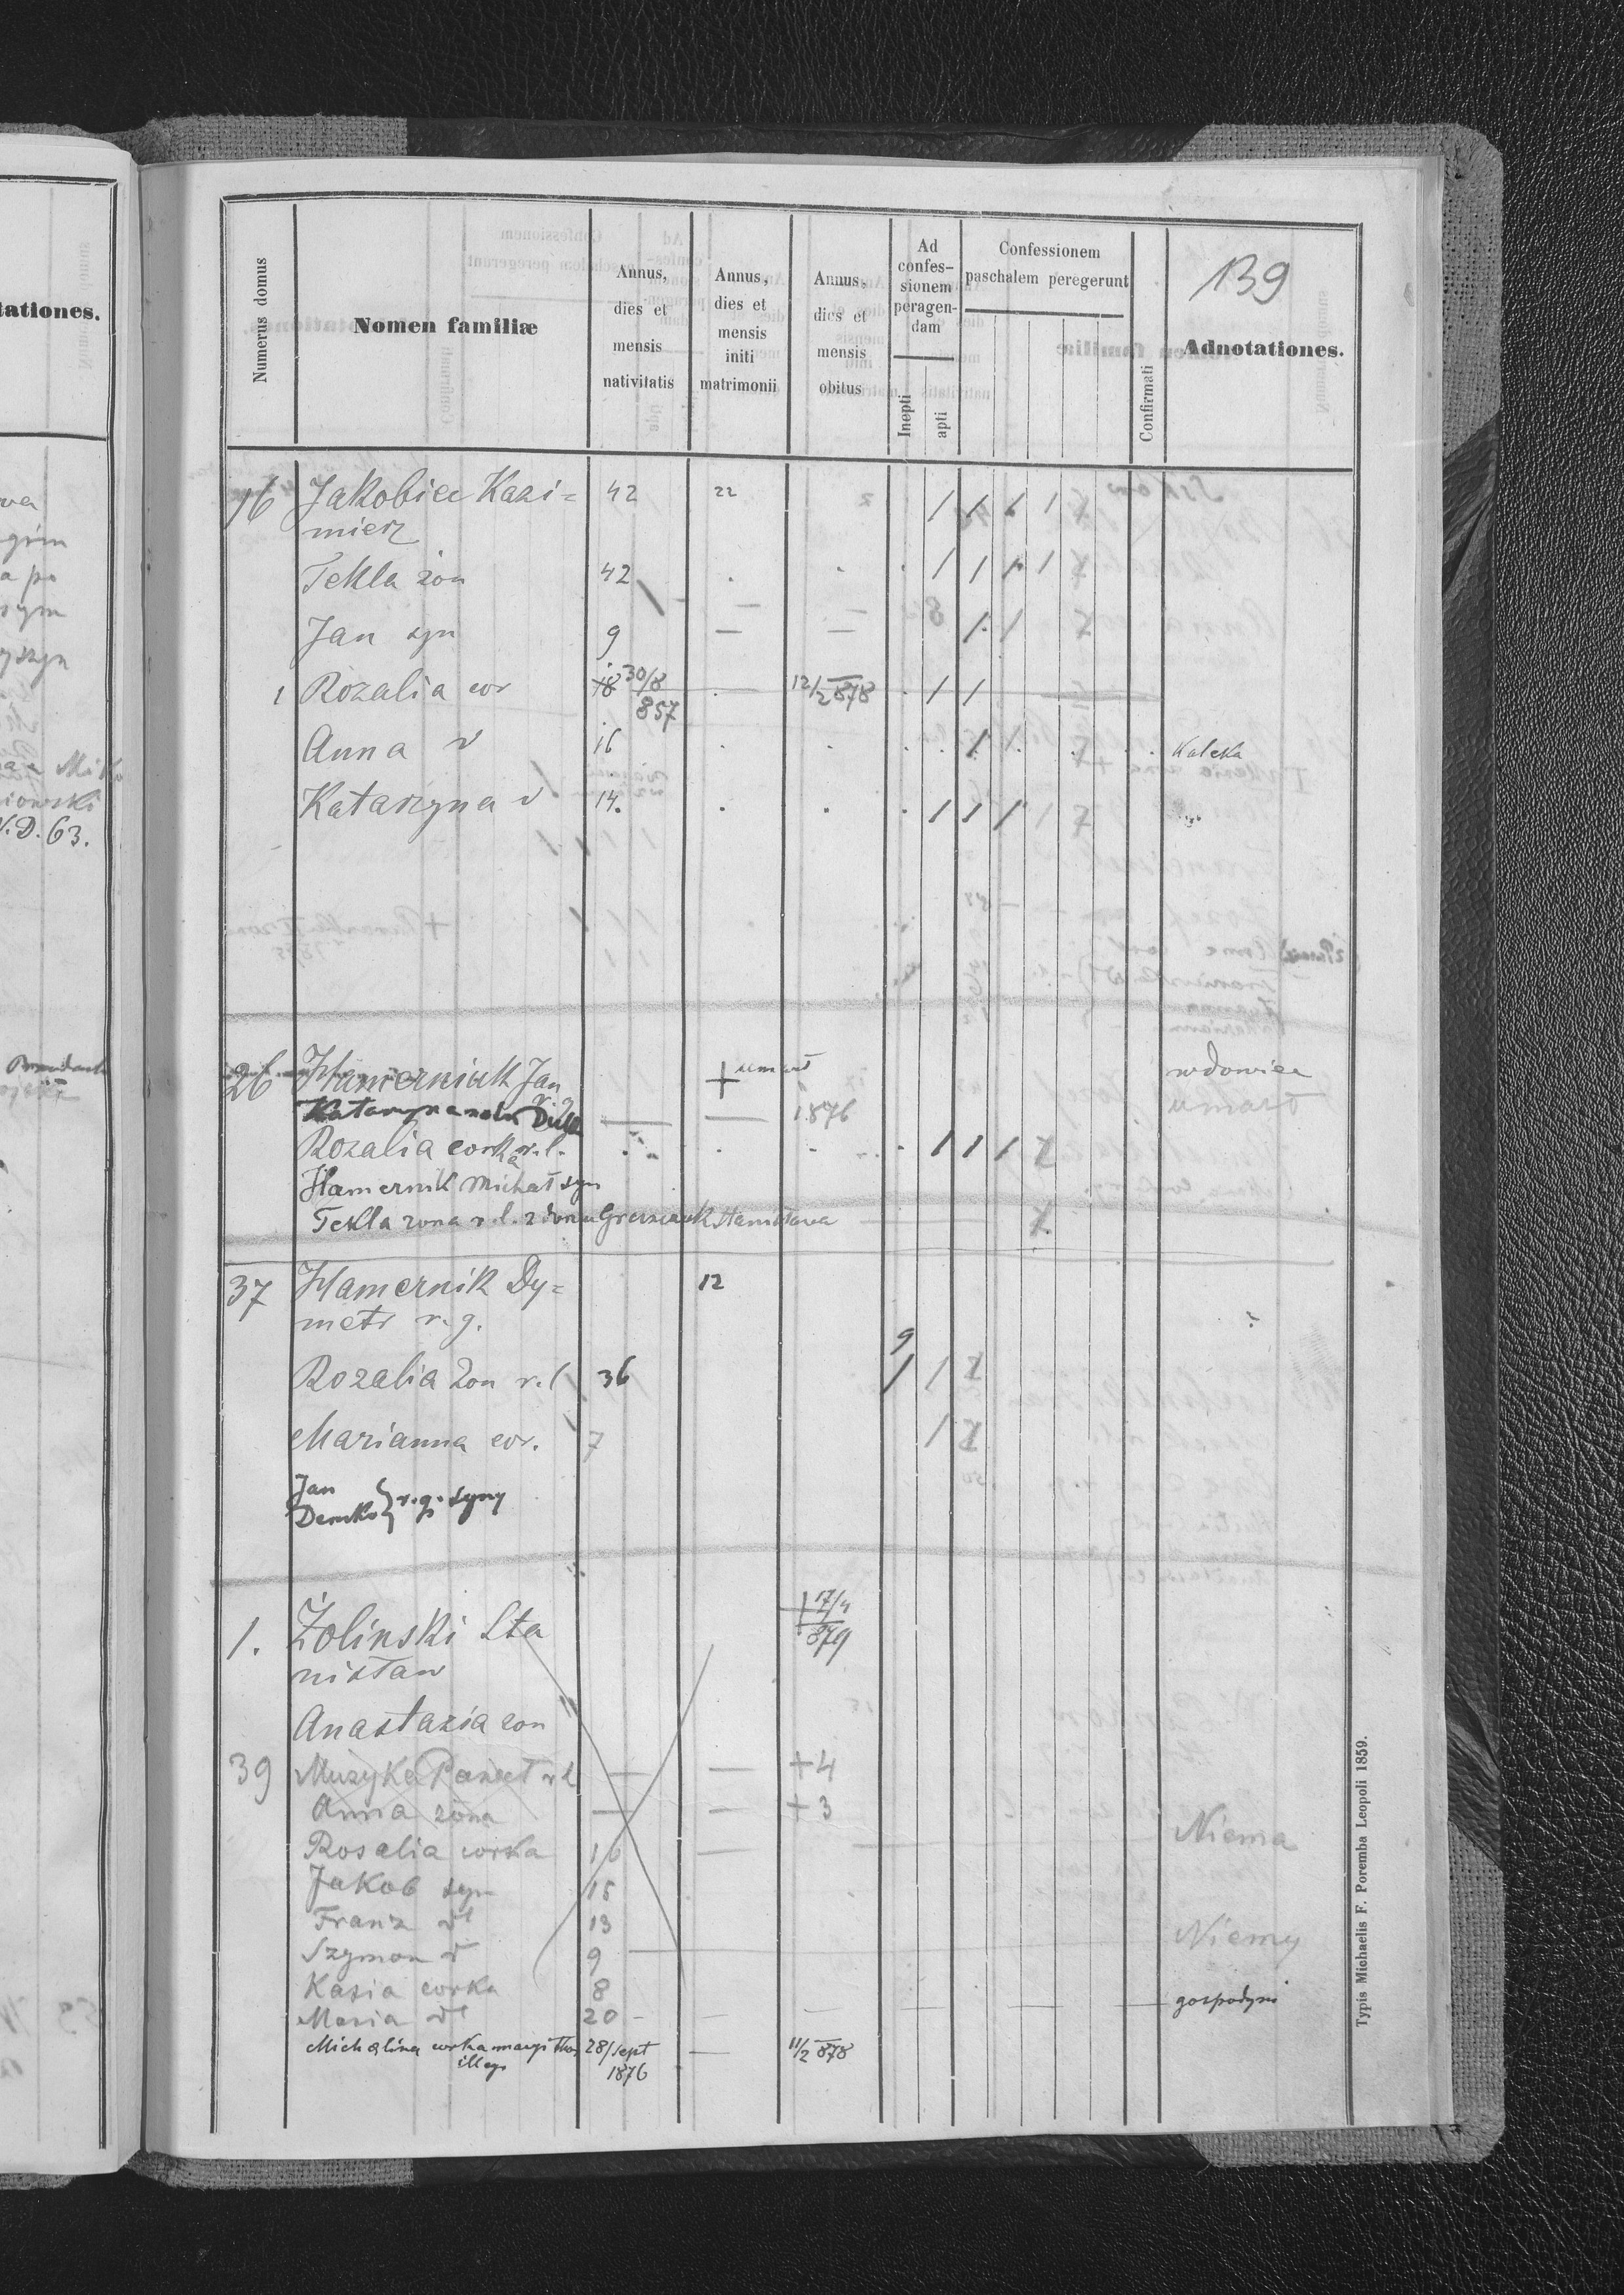 tationes.
Numerus domus
Nomen familiæ
Annus, dies et mensis nativitatis
Annus, dies et mensis initi matrimonii
Annus, dies et mensis obitus
Ad confes-sionem peragen-dam
Inepti
apti
Confessionem paschalem peregerunt
Confirmati
139
Adnotationes.
V.D. 63.
16 Jakobiec Kazi= 42 22 / / / /
mierz
Tekla żon 42 / / / /
Jan syn 9 — — / /
1 Rozalia cor 18 30/8 857 12/2 878 / /
Anna 16 / / Kaleka
Katarzyna 14. / / /
26 Hamerniuk Jan + umarł wdowiec
Katarzyna — — 1876 umarł
Rozalia corka r.l. / / /
Hamernik Michał syn
Tekla zona r.l. z domu Stanisława
37 Hamernik Dy= 12
metr r.g.
9
Rozalia żon r.l 36 / /
Marianna cor. 7 /
Jan
Demko } r.g. syny
1. Żolinski Sta + 17/4 879
nisław
Anastazia zon
39 Muzyka r l — — + 4
Anna zona — — + 3
Rosalia corka 16 — Niema
Jakob syn 15
Franz dt 13 Niemy
Szymon dt 9
Kasia corka 8
Maria dt 20 — gospodyni
Michalina corka 28/sept — 11/2 878
illeg 1876
Typis Michaelis F. Poremba Leopoli 1859.